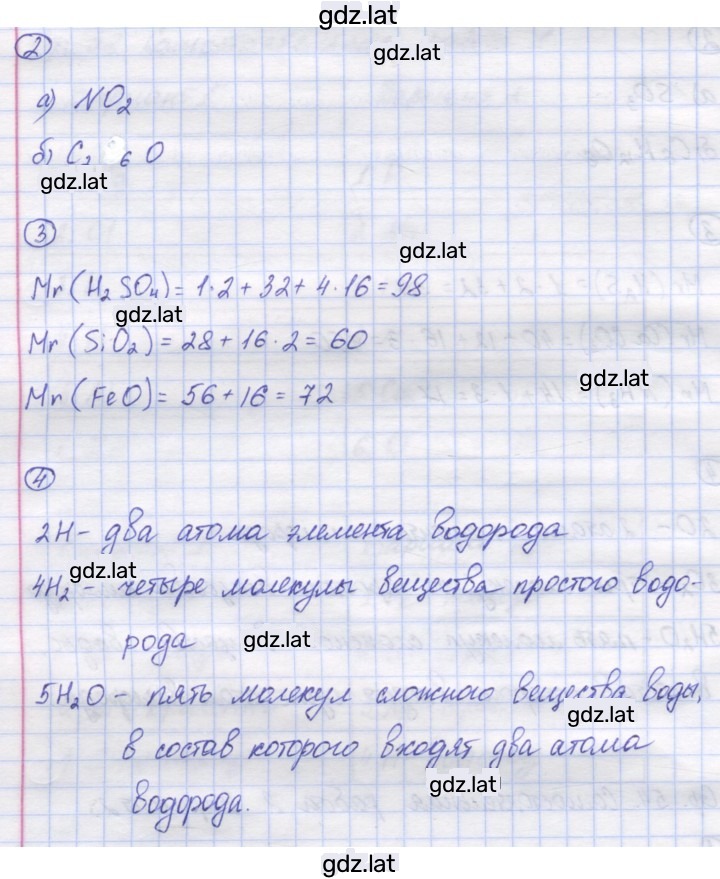 gdz.lat
2
gdz.lat
а) NO2
б) C2 6 O
gdz.lat
3
gdz.lat
Mr (H2SO4) = 1·2 + 32 + 4·16 = 98
gdz.lat
Mr (SiO2) = 28 + 16·2 = 60
gdz.lat
Mr (FeO) = 56 + 16 = 72
4
2H - два атома элемента водорода
gdz.lat
4H2 - четыре молекулы вещества простого водо-
рода
gdz.lat
5H2O - пять молекул сложного вещества воды,
gdz.lat
в состав которого входят два атома
gdz.lat
водорода.
gdz.lat